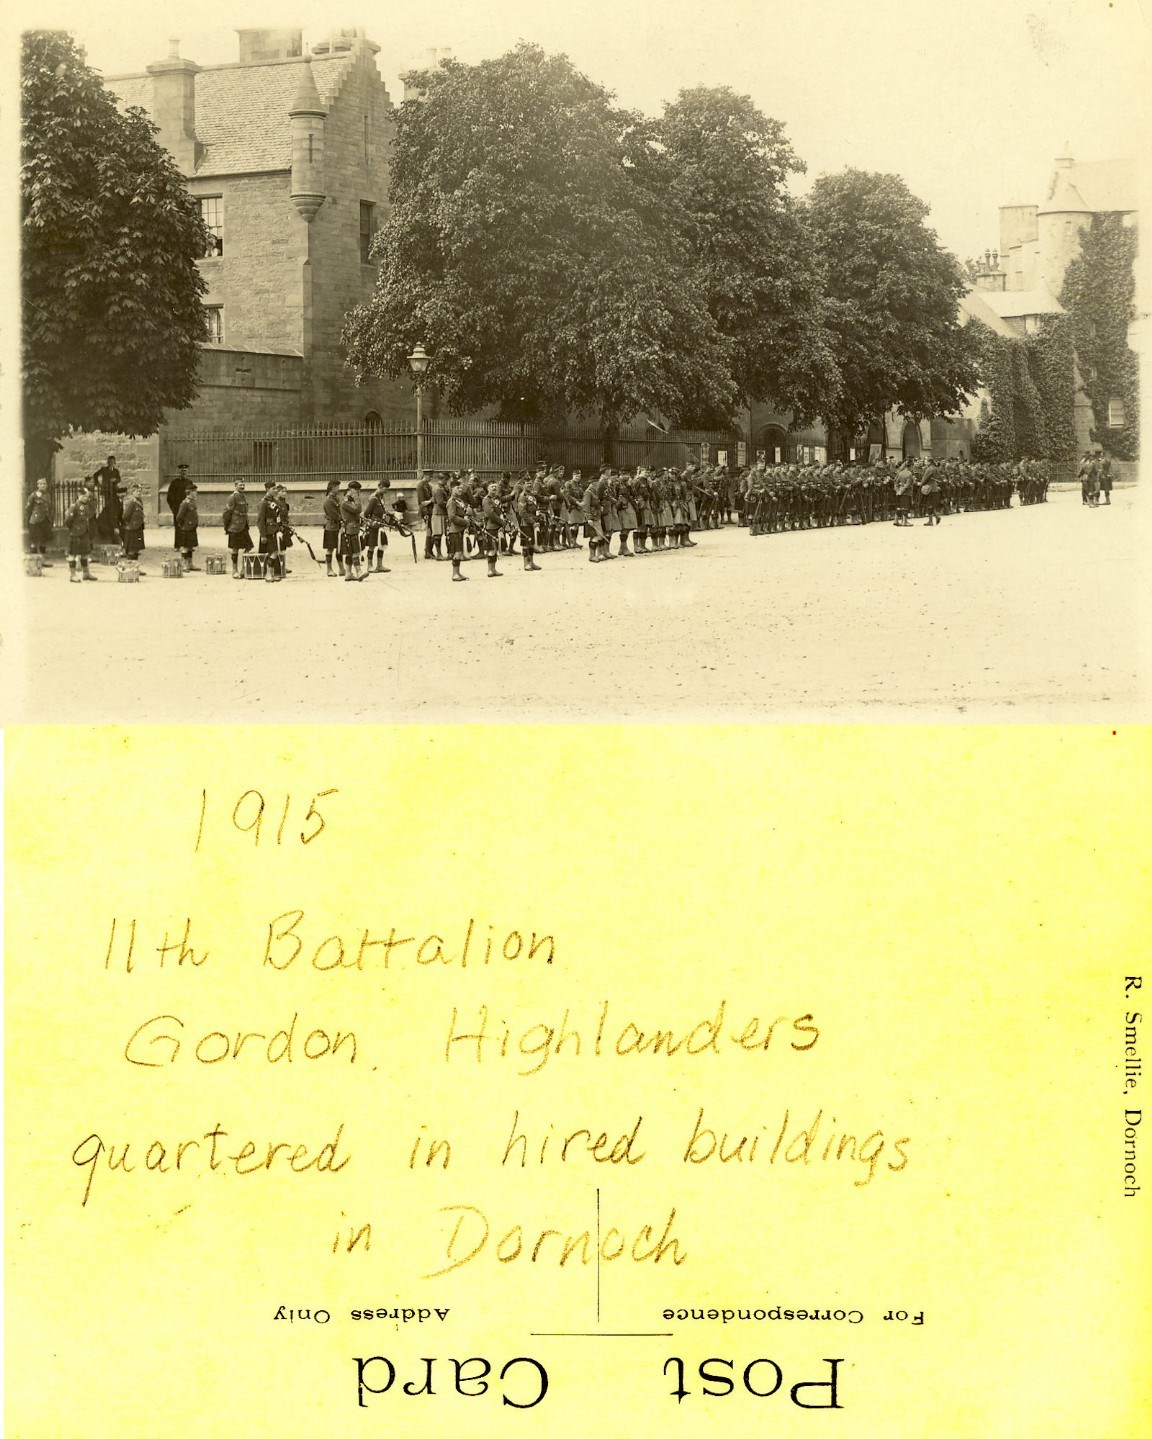 1915
11th Battalion
Gordon Highlanders
quartered in hired buildings
in Dornoch
R. Smellie, Dornoch
Post Card
For Correspondence
Address Only